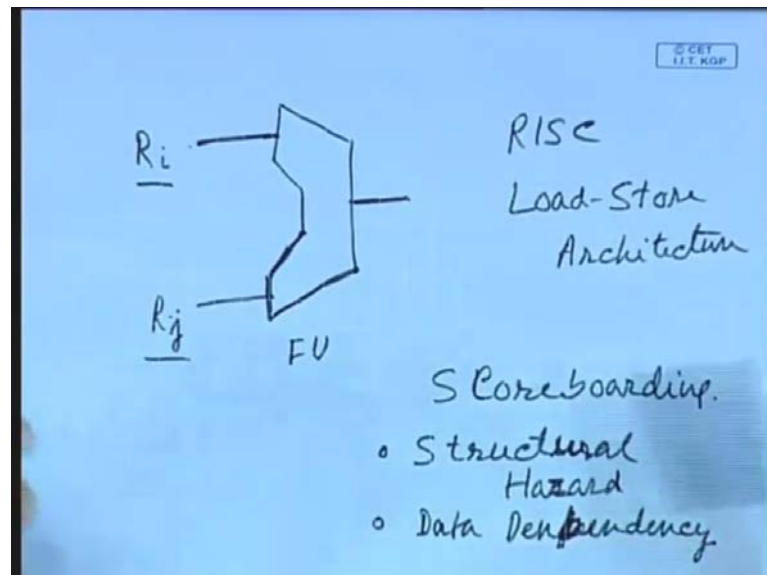 © CET
I.I.T. KGP
Ri
RISC
Load-Store
Architecture
Rj
FU
SCoreboarding.
• Structural
Hazard
• Data Denpendency